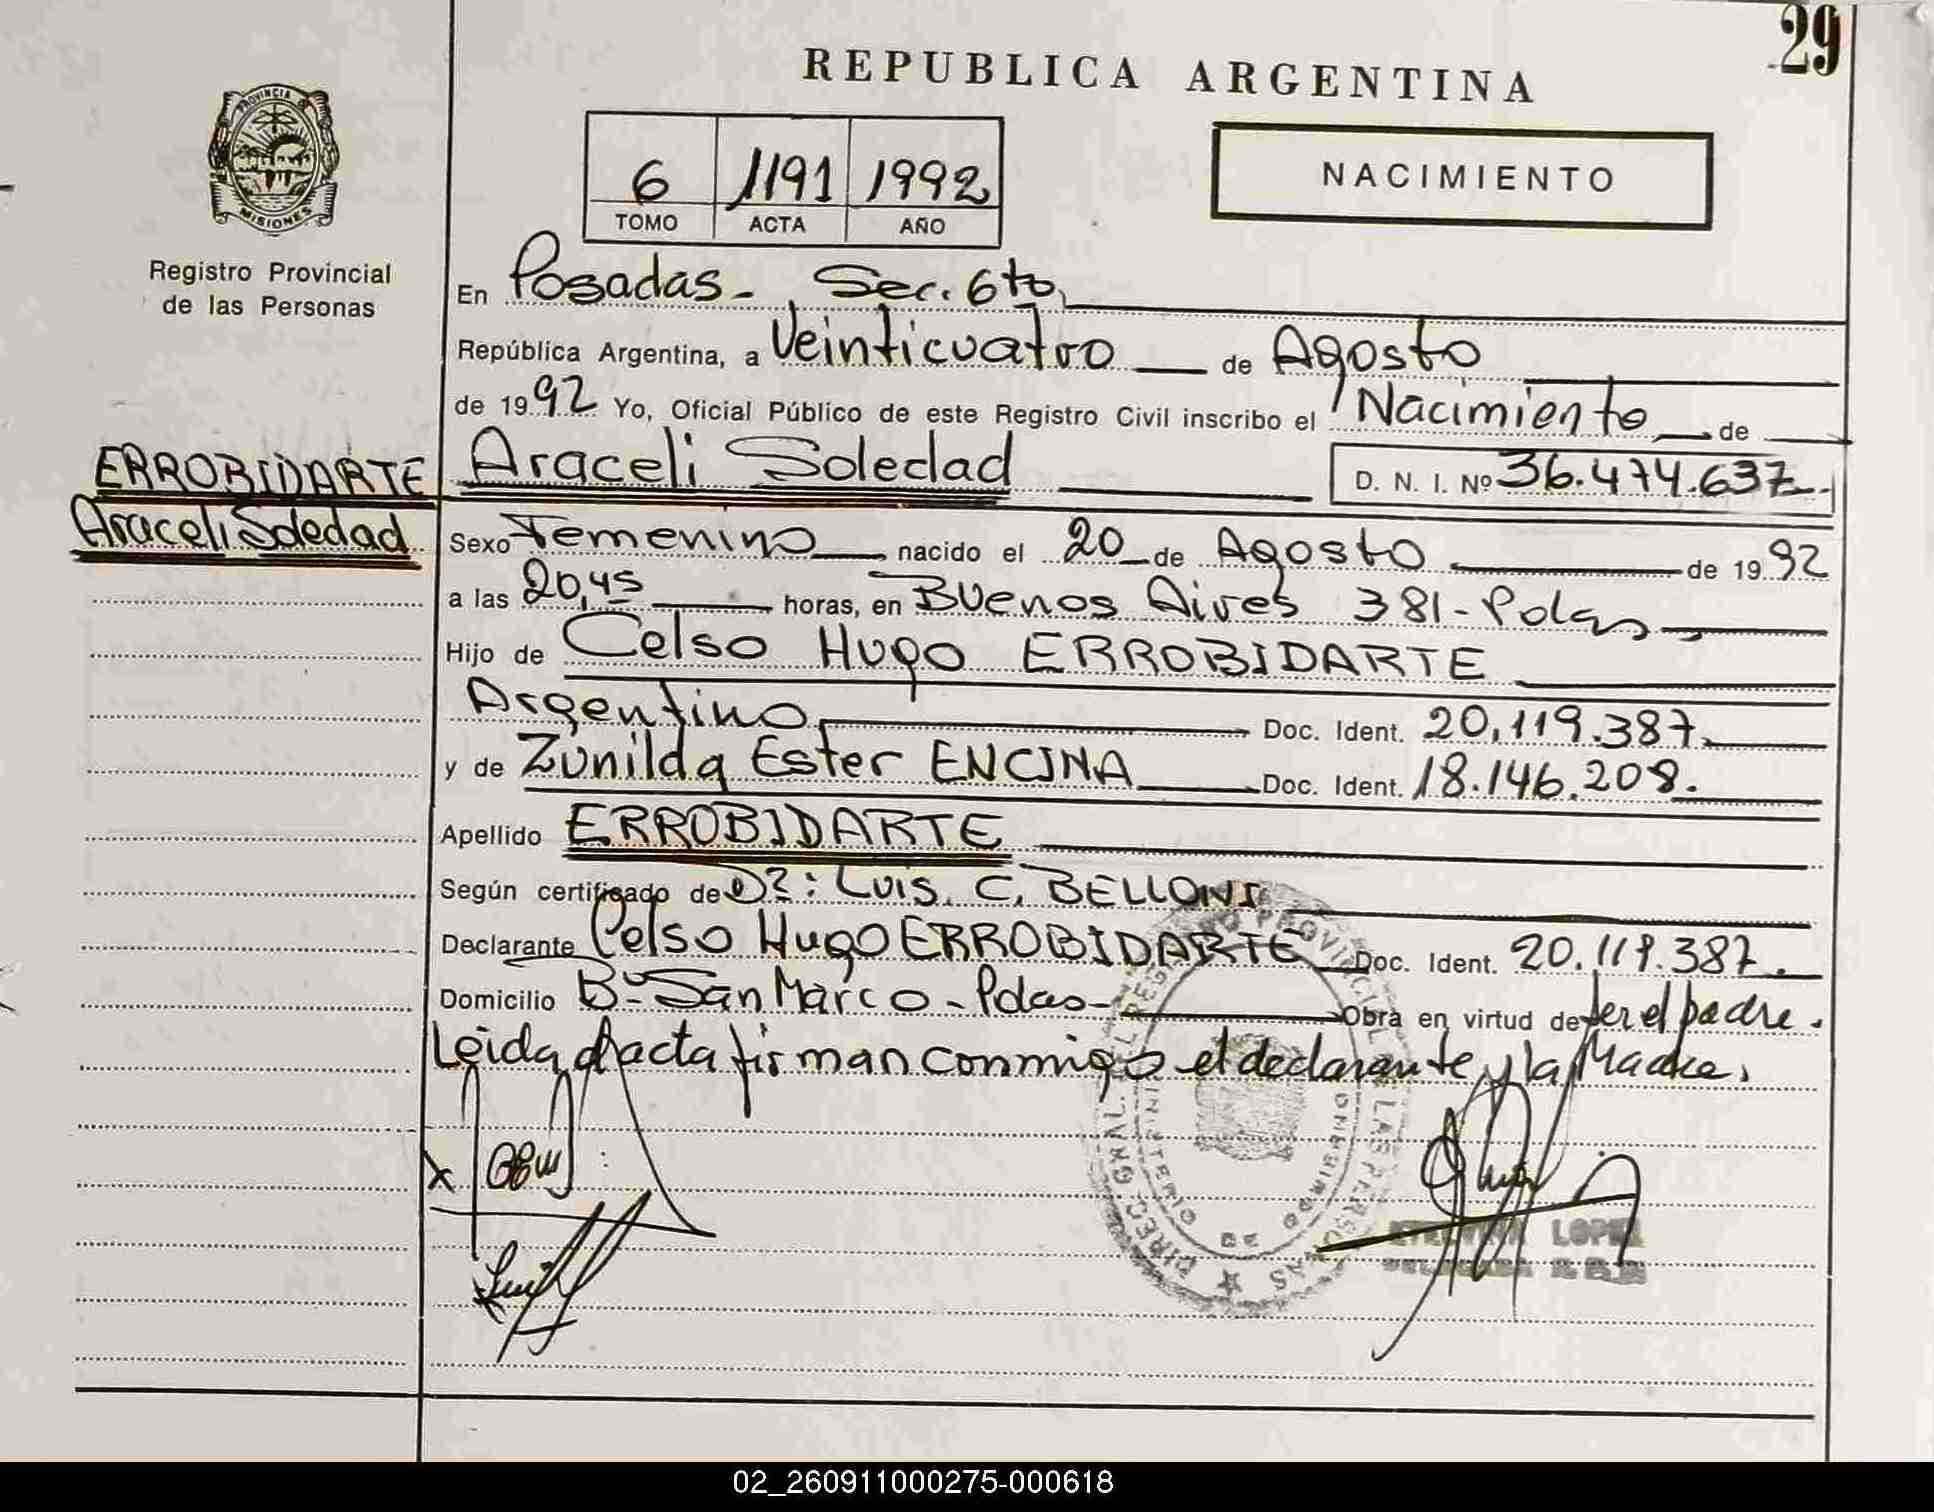 29
REPUBLICA ARGENTINA
PROVINCIA DE
MISIONES
Registro Provincial
de las Personas
6 1191 1992
TOMO ACTA AÑO
NACIMIENTO
En Posadas - Sec. 6ta
República Argentina, a Veinticuatro de Agosto
de 1992 Yo, Oficial Público de este Registro Civil inscribo el Nacimiento de
ERROBIDARTE
Araceli Soledad
Araceli Soledad D. N. I. Nº 36.474.637
Sexo Femenino nacido el 20 de Agosto de 1992
a las 20,45 horas, en Buenos Aires 381 - Pdas
Hijo de Celso Hugo ERROBIDARTE
Argentino Doc. Ident. 20.119.387
y de Zunilda Ester ENCINA Doc. Ident. 18.146.208.
Apellido ERROBIDARTE
Según certificado de Dr: Luis. C. BELLONI
Declarante Celso Hugo ERROBIDARTE Doc. Ident. 20.119.387.
Domicilio Bº San Marco - Pdas - Obra en virtud de ser el padre.
Leida el acta firman conmigo el declarante y la Madre.
X
LOPEZ
02_260911000275-000618